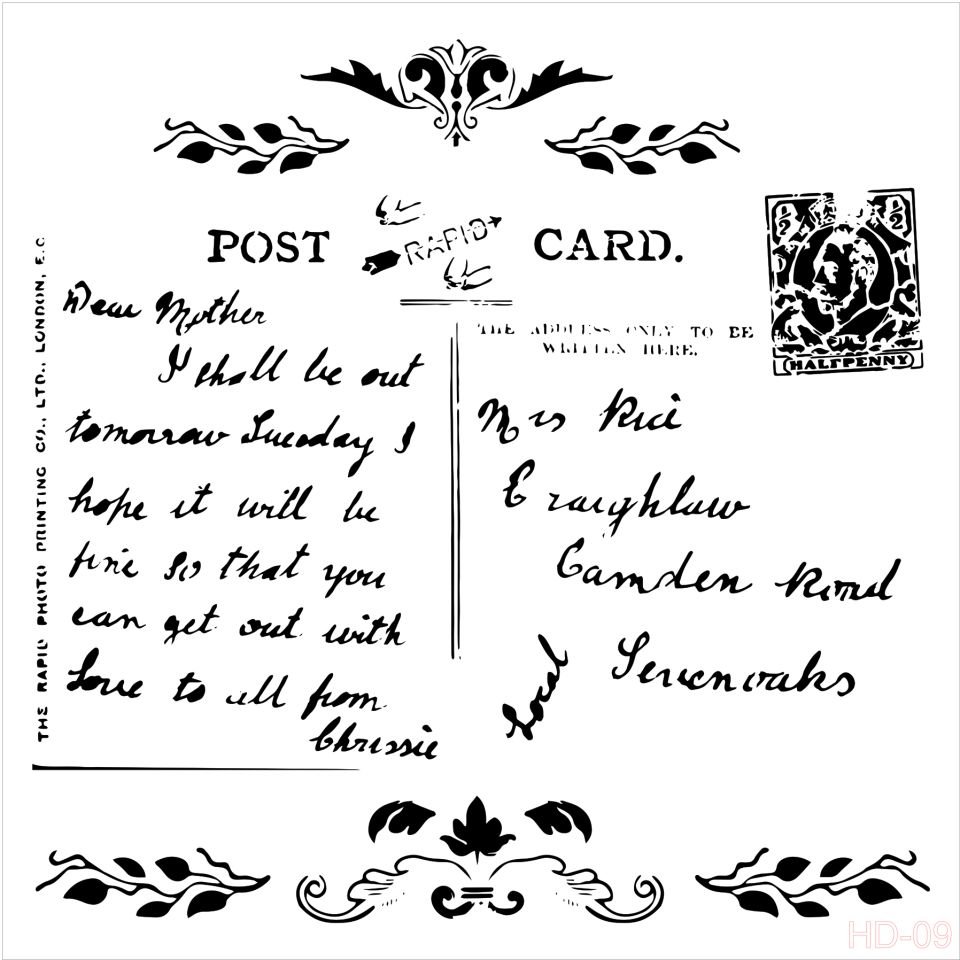 POST CARD.
RAPID
1/2 1/2
HALFPENNY
THE RAPID PHOTO PRINTING CO., LTD., LONDON, E.C
THE ADDRESS ONLY TO BE
WRITTEN HERE.
Dear Mother
I shall be out
tomorrow Tuesday I
hope it will be
fine so that you
can get out with
Love to all from
Chrissie
Mrs Rice
Craighlaw
Camden Road
Sevenoaks
Local
HD-09